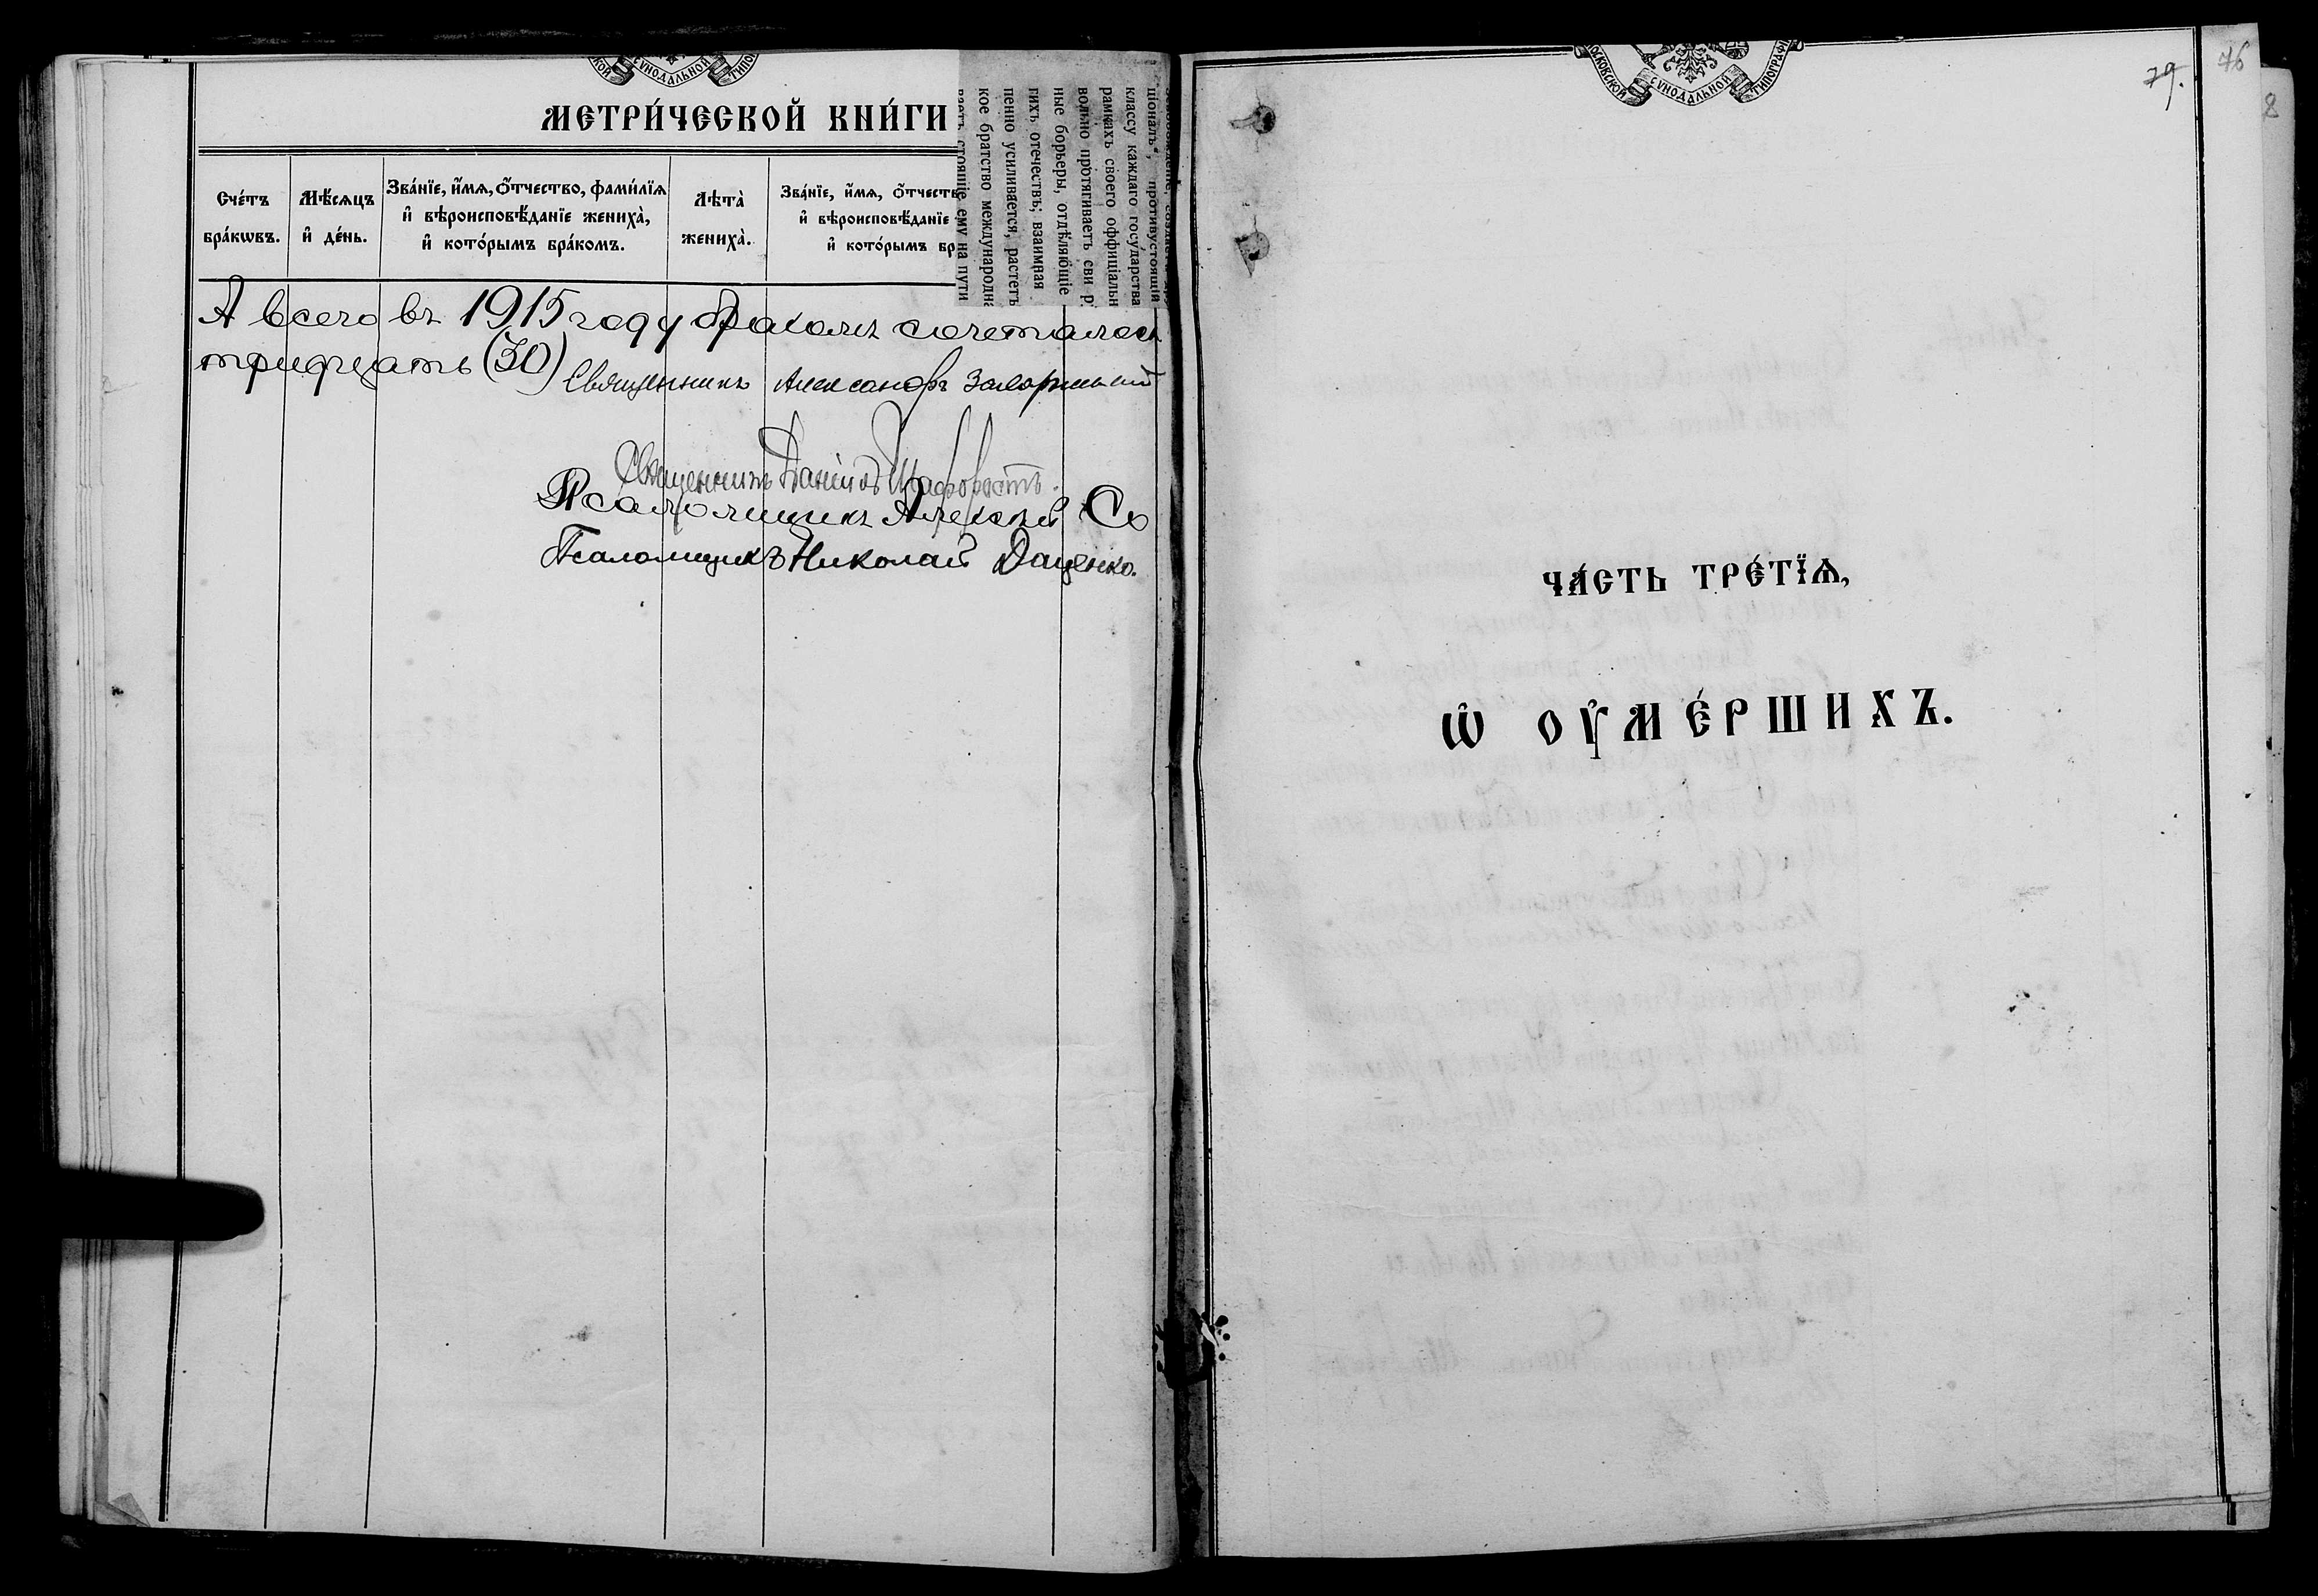 СѴНОДАЛЬНОЙ
МЕТРИ́ЧЕСКОЙ КНИ́ГИ
Сче́тъ бра́кѡвъ.
Мѣ́сяцъ и҆ де́нь.
Зва́нїе, и҆́мѧ, ѻ҆́тчество, фами́лїѧ
и҆ вѣроисповѣ́данїе жениха̀,
и҆ кото́рымъ бра́комъ.
Лѣта̀ жениха̀.
Зва́нїе, и҆́мѧ, ѻ҆́тчеств
и҆ вѣроисповѣ́данїе
и҆ кото́рымъ бр
ціоналъ", противустоящій
классу каждаго государства
рамкахъ своего оффиціальн
вольно протягиваетъ сви р
ные борьеры, отдѣляющіе
гихъ отечествъ; взаимная
пенно усиливается, растетъ
кое братство международна
ваетъ стоящіе ему на пути
А всего въ 1915 году бракомъ сочеталось
тридцать (30)
Священникъ Александръ
Священникъ Даніилъ Шафоростъ.
Псаломщикъ Алексѣй Со
Псаломщикъ Николай Даценко.
76
79.
8
МОСКОВСКОЙ СѴНОДАЛЬНОЙ ТИПОГРАФІ
ЧА́СТЬ ТРЕ́ТЇѦ,
Ѡ҆ ОУ҆МЕ́РШИХЪ.